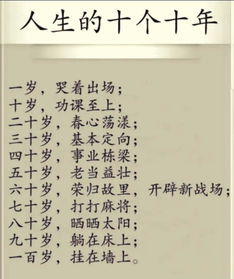 人生的十个十年
一岁，哭着出场；
十岁，功课至上；
二十岁，春心荡漾；
三十岁，基本定向；
四十岁，事业栋梁；
五十岁，老当益壮；
六十岁，荣归故里，开辟新战场；
七十岁，打打麻将；
八十岁，晒晒太阳；
九十岁，躺在床上；
一百岁，挂在墙上。